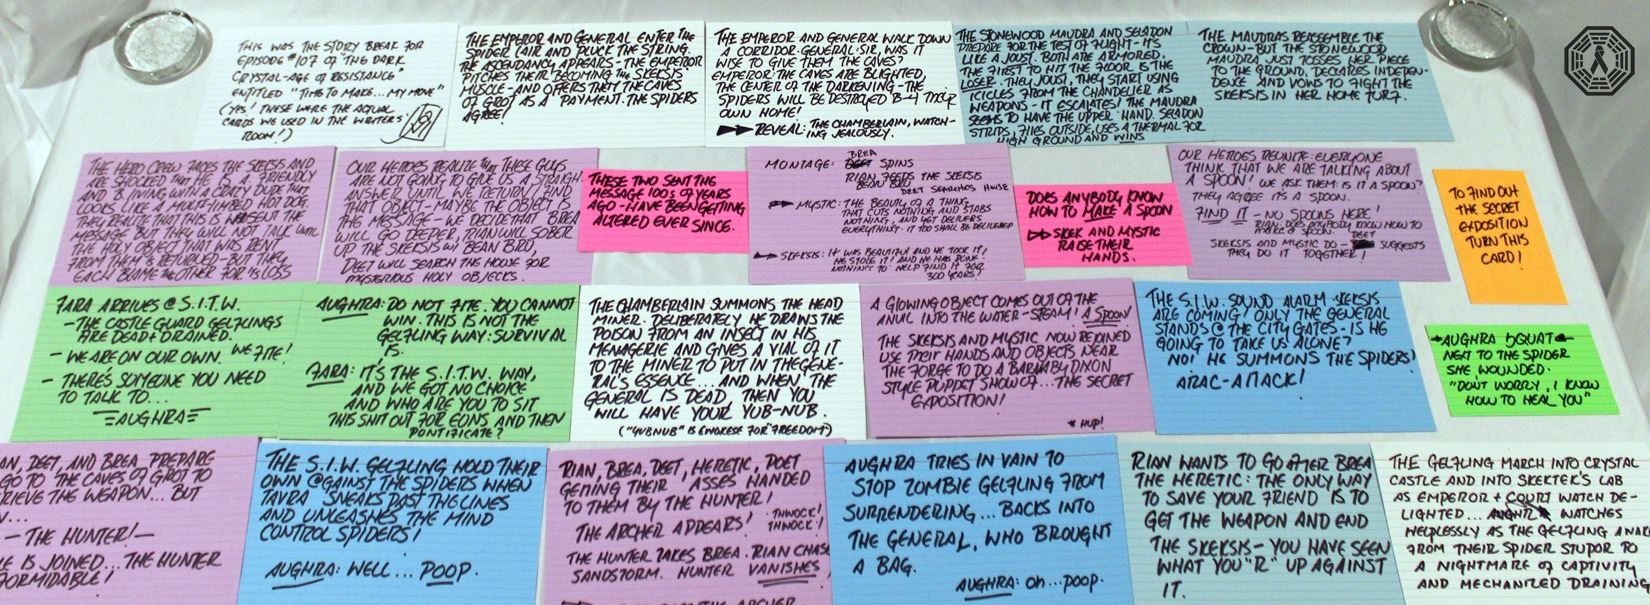 THIS WAS THE STORY BREAK FOR
EPISODE #107 OF "THE DARK
CRYSTAL-AGE OF RESISTANCE"
ENTITLED "TIME TO MAKE... MY MOVE"
(YES! THESE WERE THE ACTUAL
CARDS WE USED IN THE WRITERS'
ROOM!)
THE EMPEROR AND GENERAL ENTER THE
SPIDER LAIR AND PLUCK THE STRING.
THE ASCENDANCY APPEARS - THE EMPEROR
PITCHES THEIR BECOMING THE SKEKSIS
MUSCLE - AND OFFERS THAT THE CAVES
OF GROT AS A PAYMENT. THE SPIDERS
AGREE!
THE EMPEROR AND GENERAL WALK DOWN
A CORRIDOR. GENERAL: SIR, WAS IT
WISE TO GIVE THEM THE CAVES?
EMPEROR: THE CAVES ARE BLIGHTED,
THE CENTER OF THE DARKENING - THE
SPIDERS WILL BE DESTROYED BY THEIR
OWN HOME!
REVEAL: THE CHAMBERLAIN, WATCH-
ING JEALOUSLY.
THE STONEWOOD MAUDRA AND SELADON
PREPARE FOR THE TEST OF FLIGHT - IT'S
LIKE A JOUST. BOTH ARE ARMORED.
THE FIRST TO HIT THE FLOOR IS THE
LOSER. THEY JOUST, THEY START USING
ICICLES FROM THE CHANDELIER AS
WEAPONS - IT ESCALATES! THE MAUDRA
SEEMS TO HAVE THE UPPER HAND. SELADON
STRIPS, FLIES OUTSIDE, USES A THERMAL FOR
HIGH GROUND AND WINS
THE MAUDRAS REASSEMBLE THE
CROWN - BUT THE STONEWOOD
MAUDRA JUST TOSSES HER PIECE
TO THE GROUND, DECLARES INDEPEN-
DENCE AND VOWS TO FIGHT THE
SKEKSIS IN HER HOME TURF.
THE HERO CREW FACES THE SKEKSIS AND
ARE SHOCKED THAT HE IS FRIENDLY
AND B. LIVING WITH A CRAZY DUDE THAT
LOOKS LIKE A MULTI-LIMBED HOT DOG.
THEY REALIZE THAT THIS IS WHO SENT THE
MESSAGE BUT THEY WILL NOT TALK UNTIL
THE HOLY OBJECT THAT WAS RENT
FROM THEM IS RETURNED - BUT THEY
EACH BLAME THE OTHER FOR ITS LOSS
OUR HEROES REALIZE THAT THESE GUYS
ARE NOT GOING TO GIVE US A STRAIGHT
ANSWER UNTIL WE RETURN/FIND
THAT OBJECT - MAYBE THE OBJECT IS
THE MESSAGE - WE DECIDE THAT BREA
WILL GO DEEPER, RIAN WILL SOBER
UP THE SKEKSIS W/ BEAN BIRD,
DEET WILL SEARCH THE HOUSE FOR
MYSTERIOUS HOLY OBJECKS.
THESE TWO SENT THE
MESSAGE 100s OF YEARS
AGO - HAVE BEEN GETTING
ALTERED EVER SINCE.
MONTAGE: BREA SPINS
RIAN FEEDS THE SKEKSIS
BEAN BIRD
DEET SEARCHES HOUSE
MYSTIC: THE BEAUTY OF A THING
THAT CUTS NOTHING AND STABS
NOTHING, AND YET DELIVERS
EVERYTHING. IT TOO SHALL BE DELIVERED
SKEKSIS: IT WAS BEAUTIFUL AND HE TOOK IT!
HE STOLE IT! AND HE HAS DONE
NOTHING TO HELP FIND IT FOR
300 YEARS!
DOES ANYBODY KNOW
HOW TO MAKE A SPOON
SKEK AND MYSTIC
RAISE THEIR
HANDS.
OUR HEROES REUNITE: EVERYONE
THINK THAT WE ARE TALKING ABOUT
A SPOON! WE ASK THEM: IS IT A SPOON?
THEY AGREE ITS A SPOON.
FIND IT - NO SPOONS HERE!
RIAN: DOES ANYBODY KNOW HOW TO
MAKE A SPOON.
SKEKSIS AND MYSTIC DO - DEET SUGGESTS
THEY DO IT TOGETHER!
TO FIND OUT
THE SECRET
EXPOSITION
TURN THIS
CARD!
FARA ARRIVES @ S.I.T.W.
- THE CASTLE GUARD GELFLINGS
ARE DEAD + DRAINED.
- WE ARE ON OUR OWN. WE FITE!
- THERE'S SOMEONE YOU NEED
TO TALK TO...
=AUGHRA=
AUGHRA: DO NOT FITE. YOU CANNOT
WIN. THIS IS NOT THE
GELFLING WAY: SURVIVAL
IS.
FARA: IT'S THE S.I.T.W. WAY,
AND WE GOT NO CHOICE
AND WHO ARE YOU TO SIT
THIS SHIT OUT FOR EONS AND THEN
PONTIFICATE?
THE CHAMBERLAIN SUMMONS THE HEAD
MINER. DELIBERATELY HE DRAWS THE
POISON FROM AN INSECT IN HIS
MENAGERIE AND GIVES A VIAL OF IT
TO THE MINER TO PUT IN THE GENE-
RAL'S ESSENCE... AND WHEN THE
GENERAL IS DEAD, THEN YOU
WILL HAVE YOUR YUB-NUB.
("YUBNUB" IS EWOKESE FOR "FREEDOM")
A GLOWING OBJECT COMES OUT OF THE
ANVIL INTO THE WATER - STEAM! A SPOON!
THE SKEKSIS AND MYSTIC NOW REJOINED
USE THEIR HANDS AND OBJECTS NEAR
THE FORGE TO DO A BARNABY DIXON
STYLE PUPPET SHOW OF... THE SECRET
EXPOSITION!
* HUP!
THE S.I.W. SOUND ALARM. SKEKSIS
ARE COMING! ONLY THE GENERAL
STANDS @ THE CITY GATES - IS HE
GOING TO TAKE US ALONE?
NO! HE SUMMONS THE SPIDERS!
ARAC-ATTACK!
AUGHRA SQUAT
NEXT TO THE SPIDER
SHE WOUNDED.
"DON'T WORRY, I KNOW
HOW TO HEAL YOU"
AN, DEET, AND BREA PREPARE
GO TO THE CAVES OF GROT TO
RIEVE THE WEAPON... BUT
- THE HUNTER! -
E IS JOINED... THE HUNTER
FORMIDABLE!
THE S.I.W. GELFLING HOLD THEIR
OWN AGAINST THE SPIDERS WHEN
TAVRA SNEAKS PAST THE LINES
AND UNLEASHES THE MIND
CONTROL SPIDERS!
AUGHRA: WELL... POOP.
RIAN, BREA, DEET, HERETIC, POET
GETTING THEIR ASSES HANDED
TO THEM BY THE HUNTER!
THE ARCHER APPEARS! THWOCK!
THWOCK!
THE HUNTER TAKES BREA. RIAN CHASE
SANDSTORM. HUNTER VANISHES
THE ARCHER
AUGHRA TRIES IN VAIN TO
STOP ZOMBIE GELFLING FROM
SURRENDERING... BACKS INTO
THE GENERAL, WHO BROUGHT
A BAG.
AUGHRA: OH...POOP.
RIAN WANTS TO GO AFTER BREA
THE HERETIC: THE ONLY WAY
TO SAVE YOUR FRIEND IS TO
GET THE WEAPON AND END
THE SKEKSIS - YOU HAVE SEEN
WHAT YOU "R" UP AGAINST
IT.
THE GELFLING MARCH INTO CRYSTAL
CASTLE AND INTO SKEKTEK'S LAB
AS EMPEROR + COURT WATCH DE-
LIGHTED... WATCHES
HELPLESSLY AS THE GELFLING AWAKE
FROM THEIR SPIDER STUPOR TO
A NIGHTMARE OF CAPTIVITY
AND MECHANIZED DRAINING